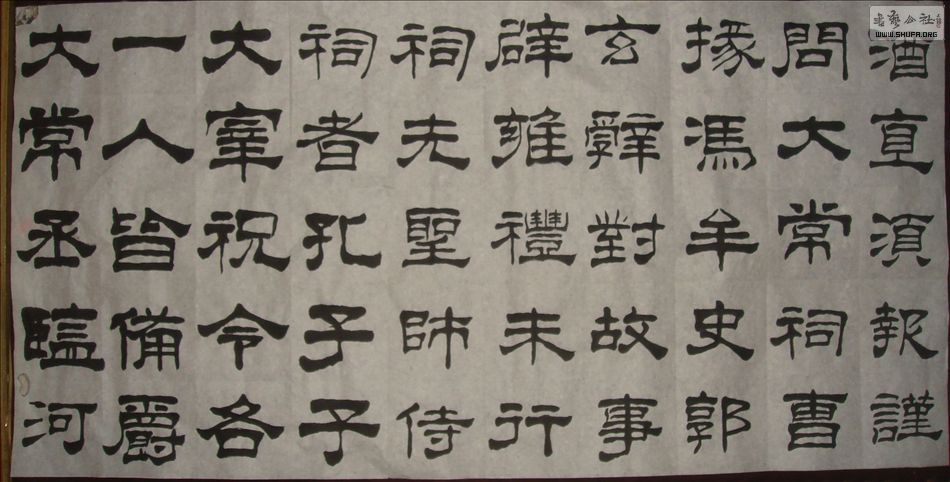 酒直須報謹
問大常祠曹
掾馮牟史郭
玄辭對故事
辟雍禮未行
祠先聖師侍
祠者孔子子
大宰祝令各
一人皆備爵
大常丞監河
書藝公社
WWW.SHUFA.ORG